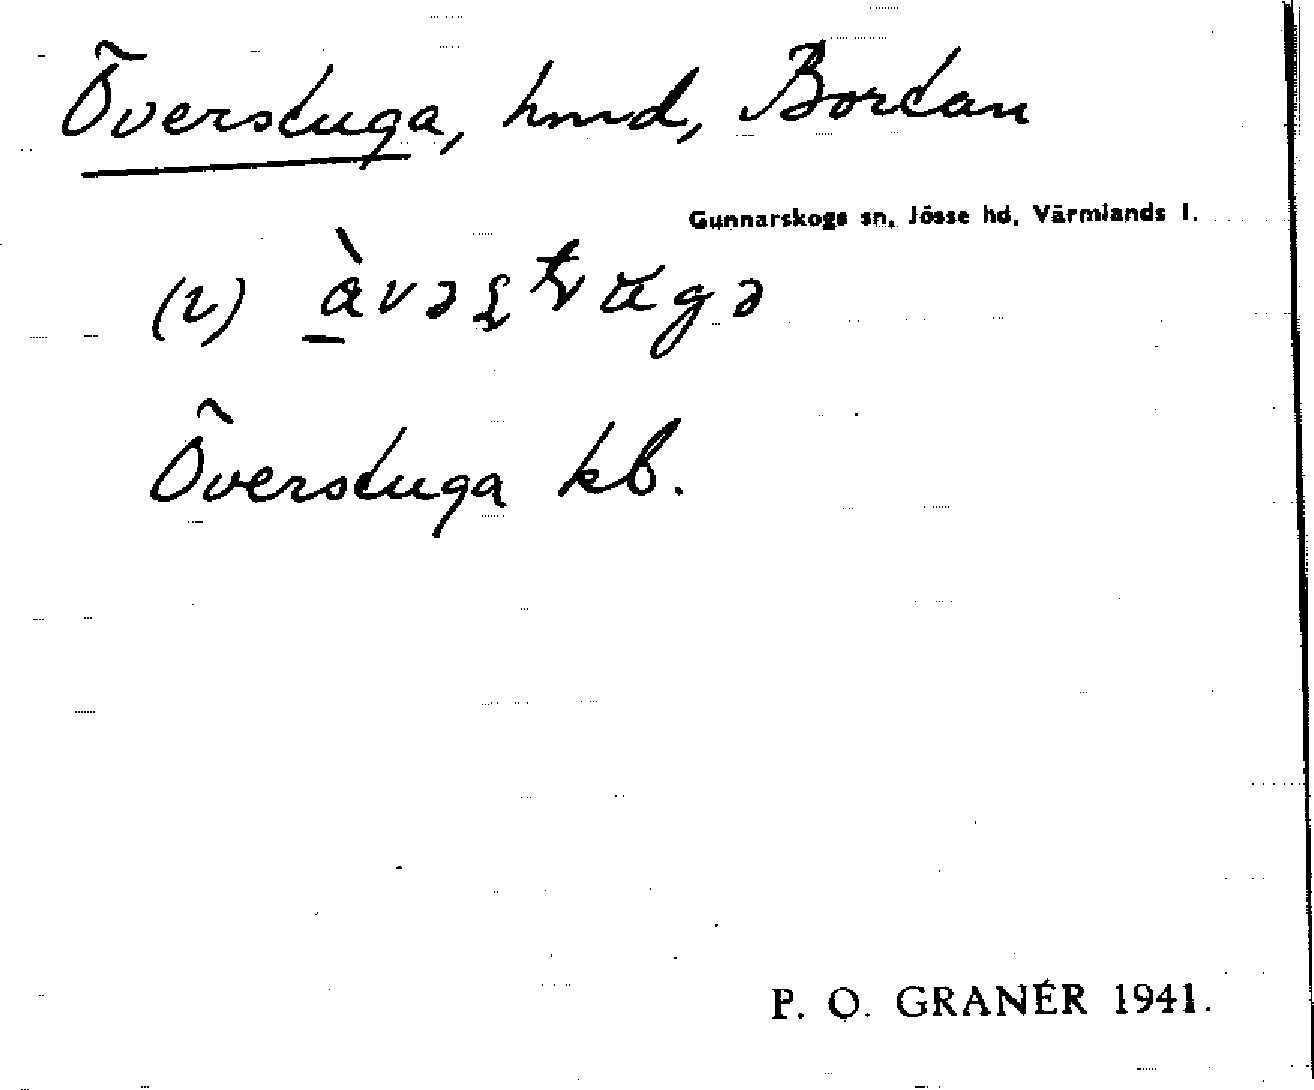 Överstuga, hmd, Bortan
Gunnarskogs sn, Jösse hd, Värmlands l.
(2)
Överstuga kb.
P. O. GRANÉR 1941.